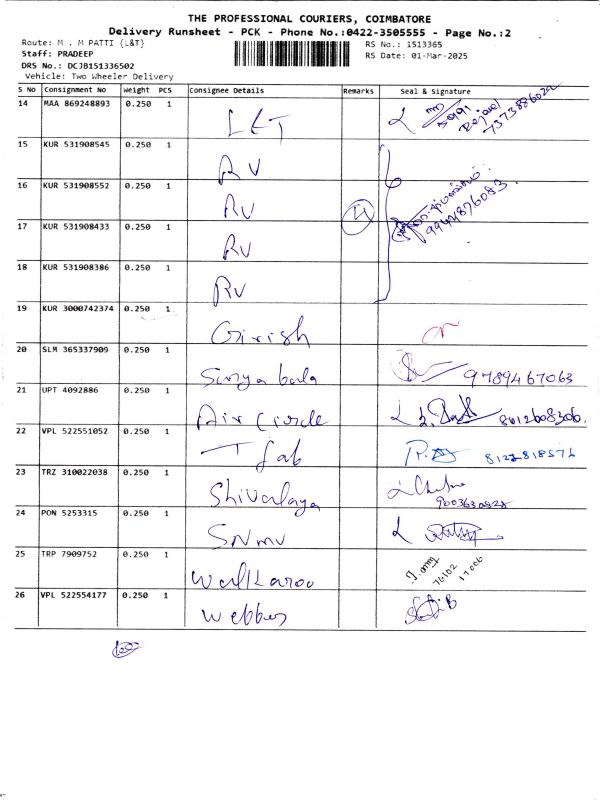 THE PROFESSIONAL COURIERS, COIMBATORE
Delivery Runsheet - PCK - Phone No.:0422-3505555 - Page No.:2
Route: M . M PATTI {L&T} RS No.: 1513365
Staff: PRADEEP RS Date: 01-Mar-2025
DRS No.: DCJB151336502
Vehicle: Two Wheeler Delivery
S No Consignment No Weight PCS Consignee Details Remarks Seal & Signature
14 MAA 869248893 0.250 1 L&T
15 KUR 531908545 0.250 1 RV
16 KUR 531908552 0.250 1 RV
17 KUR 531908433 0.250 1 RV 9944876083
18 KUR 531908386 0.250 1 RV
19 KUR 3000742374 0.250 1 Girish
20 SLM 365337909 0.250 1 Surya bala 9789467063
21 UPT 4092886 0.250 1 Air Circle 8012608306
22 VPL 522551052 0.250 1 T Lab 8122818576
23 TRZ 310022038 0.250 1 Shivalaya
24 PON 5253315 0.250 1 SNMV
25 TRP 7909752 0.250 1 Walkaroo 76102 17006
26 VPL 522554177 0.250 1 Webbus